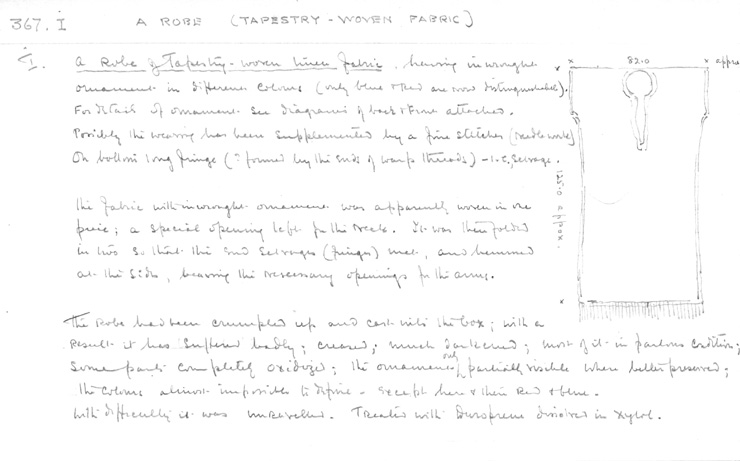 367. i A ROBE (TAPESTRY - WOVEN FABRIC)
A Robe of Tapestry-woven linen fabric, bearing inwrought
ornament in different colours (only blue & red are now distinguishable).
For details of ornament see diagrams of back & front attached.
Possibly the weaving has been supplemented by a fine stitches (needle work)
On bottom long fringe (? formed by the ends of warp threads) - i.e, Selvage.
The fabric with inwrought ornament was apparently woven in one
piece; a special opening left for the neck. It was then folded
in two so that the end selvages (fringes) met, and hemmed
at the sides, leaving the necessary openings for the arms.
The Robe had been crumpled up and cast into the box; with a
result it has suffered badly; creased; much darkened; most of it in parlous condition;
some parts completely oxidized; the ornament only partially visible where better preserved;
the colours almost impossible to define - except here & there Red & blue.
With difficulty it was unravelled. Treated with Duroprene dissolved in Xylol.
82.0
appro
125.0 approx.